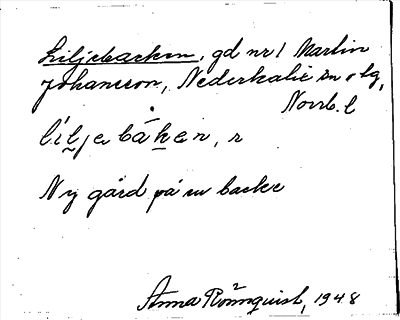 Liljebacken, gd nr 1 Martin
Johansson, Nederkalix sn o tg,
Norrb. l
liljebáken, r
Ny gård på en backe
Anna Rönnquist, 1948